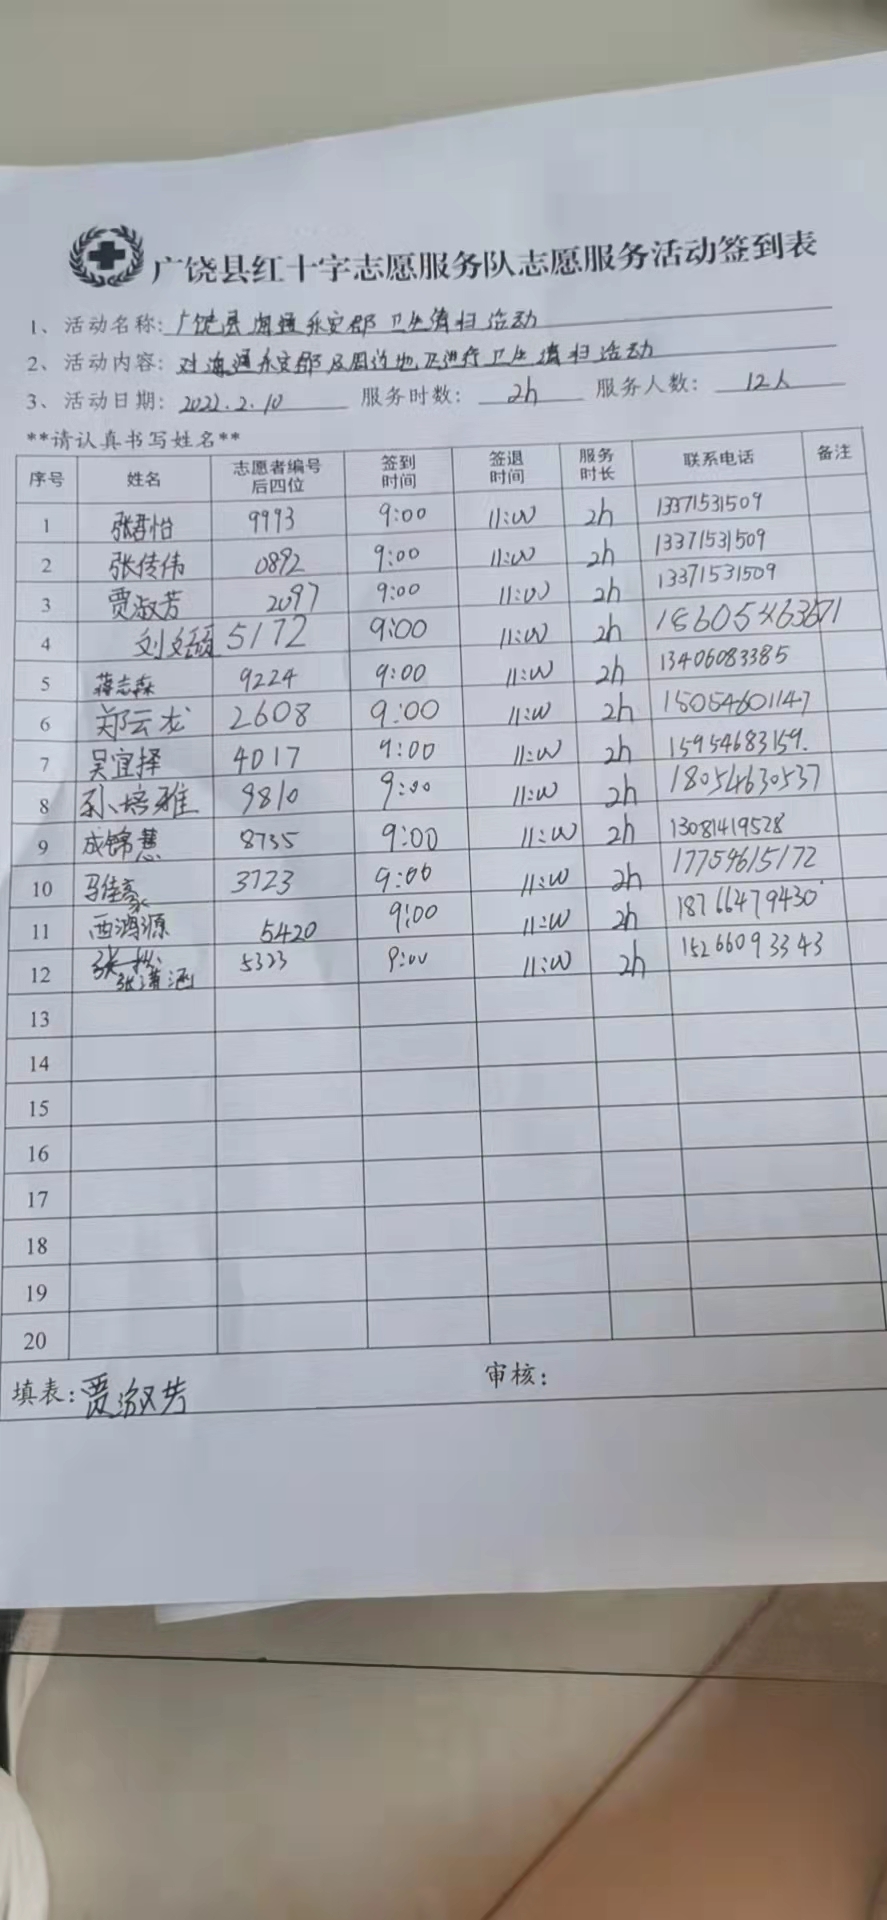 广饶县红十字志愿服务队志愿服务活动签到表
1、活动名称:广饶县海通永安郡卫生清扫活动
2、活动内容:对海通永安郡及周边地区进行卫生清扫活动
3、活动日期:2022.2.10 服务时数:2h 服务人数:12人
**请认真书写姓名**
序号 姓名 志愿者编号后四位 签到时间 签退时间 服务时长 联系电话 备注
1 张君怡 9993 9:00 11:00 2h 13371531509
2 张传伟 0892 9:00 11:00 2h 13371531509
3 贾淑芳 2097 9:00 11:00 2h 13371531509
4 刘文硕 5172 9:00 11:00 2h
5 蒋志森 9224 9:00 11:00 2h 13406083385
6 郑云龙 2608 9:00 11:00 2h 15054601147
7 吴宜择 4017 9:00 11:00 2h 15954683159.
8 孙培雅 9810 9:00 11:00 2h 18054630537
9 成锦慧 8735 9:00 11:00 2h 13081419528
10 马佳豪 3723 9:00 11:00 2h 17754615172
11 西鸿源 5420 9:00 11:00 2h 18766479430
12 张潇涵 5323 9:00 11:00 2h 15266093343
13
14
15
16
17
18
19
20
填表:贾淑芳 审核: